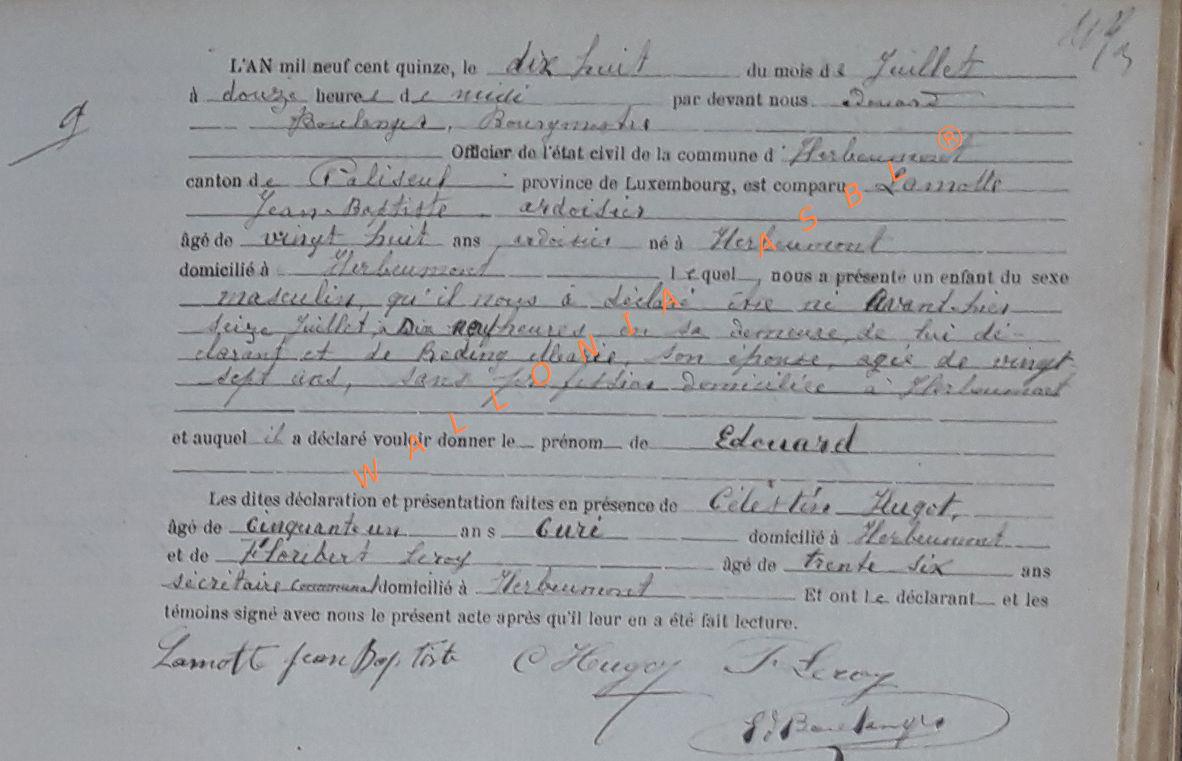 L'AN mil neuf cent quinze, le dix huit du mois de Juillet
9
à douze heures de midi par devant nous Edouard
Boulanger, Bourgmestre
Officier de l'état civil de la commune d'Herbeumont
canton de Paliseul province de Luxembourg, est comparu Lamotte
Jean-Baptiste ardoisier
âgé de vingt huit ans ardoisier né à Herbeumont
domicilié à Herbeumont lequel, nous a présenté un enfant du sexe
masculin, qu'il nous à déclaré être né Avant-hier
seize Juillet à Dix neuf heures en sa demeure, de lui dé-
clarant et de Reding Marie, son épouse, agée de vingt
sept ans, sans profession domiciliée à Herbeumont
et auquel il a déclaré vouloir donner le prénom de Edouard
Les dites déclaration et présentation faites en présence de Célestin Hugot,
âgé de Cinquante un ans Curé domicilié à Herbeumont
et de Floribert Leroy âgé de trente six ans
secrétaire communal domicilié à Herbeumont Et ont le déclarant et les
témoins signé avec nous le présent acte après qu'il leur en a été fait lecture.
Lamott jean Baptiste C Hugot F. Leroy
Ed Boulanger
WALLONIA ASBL ®